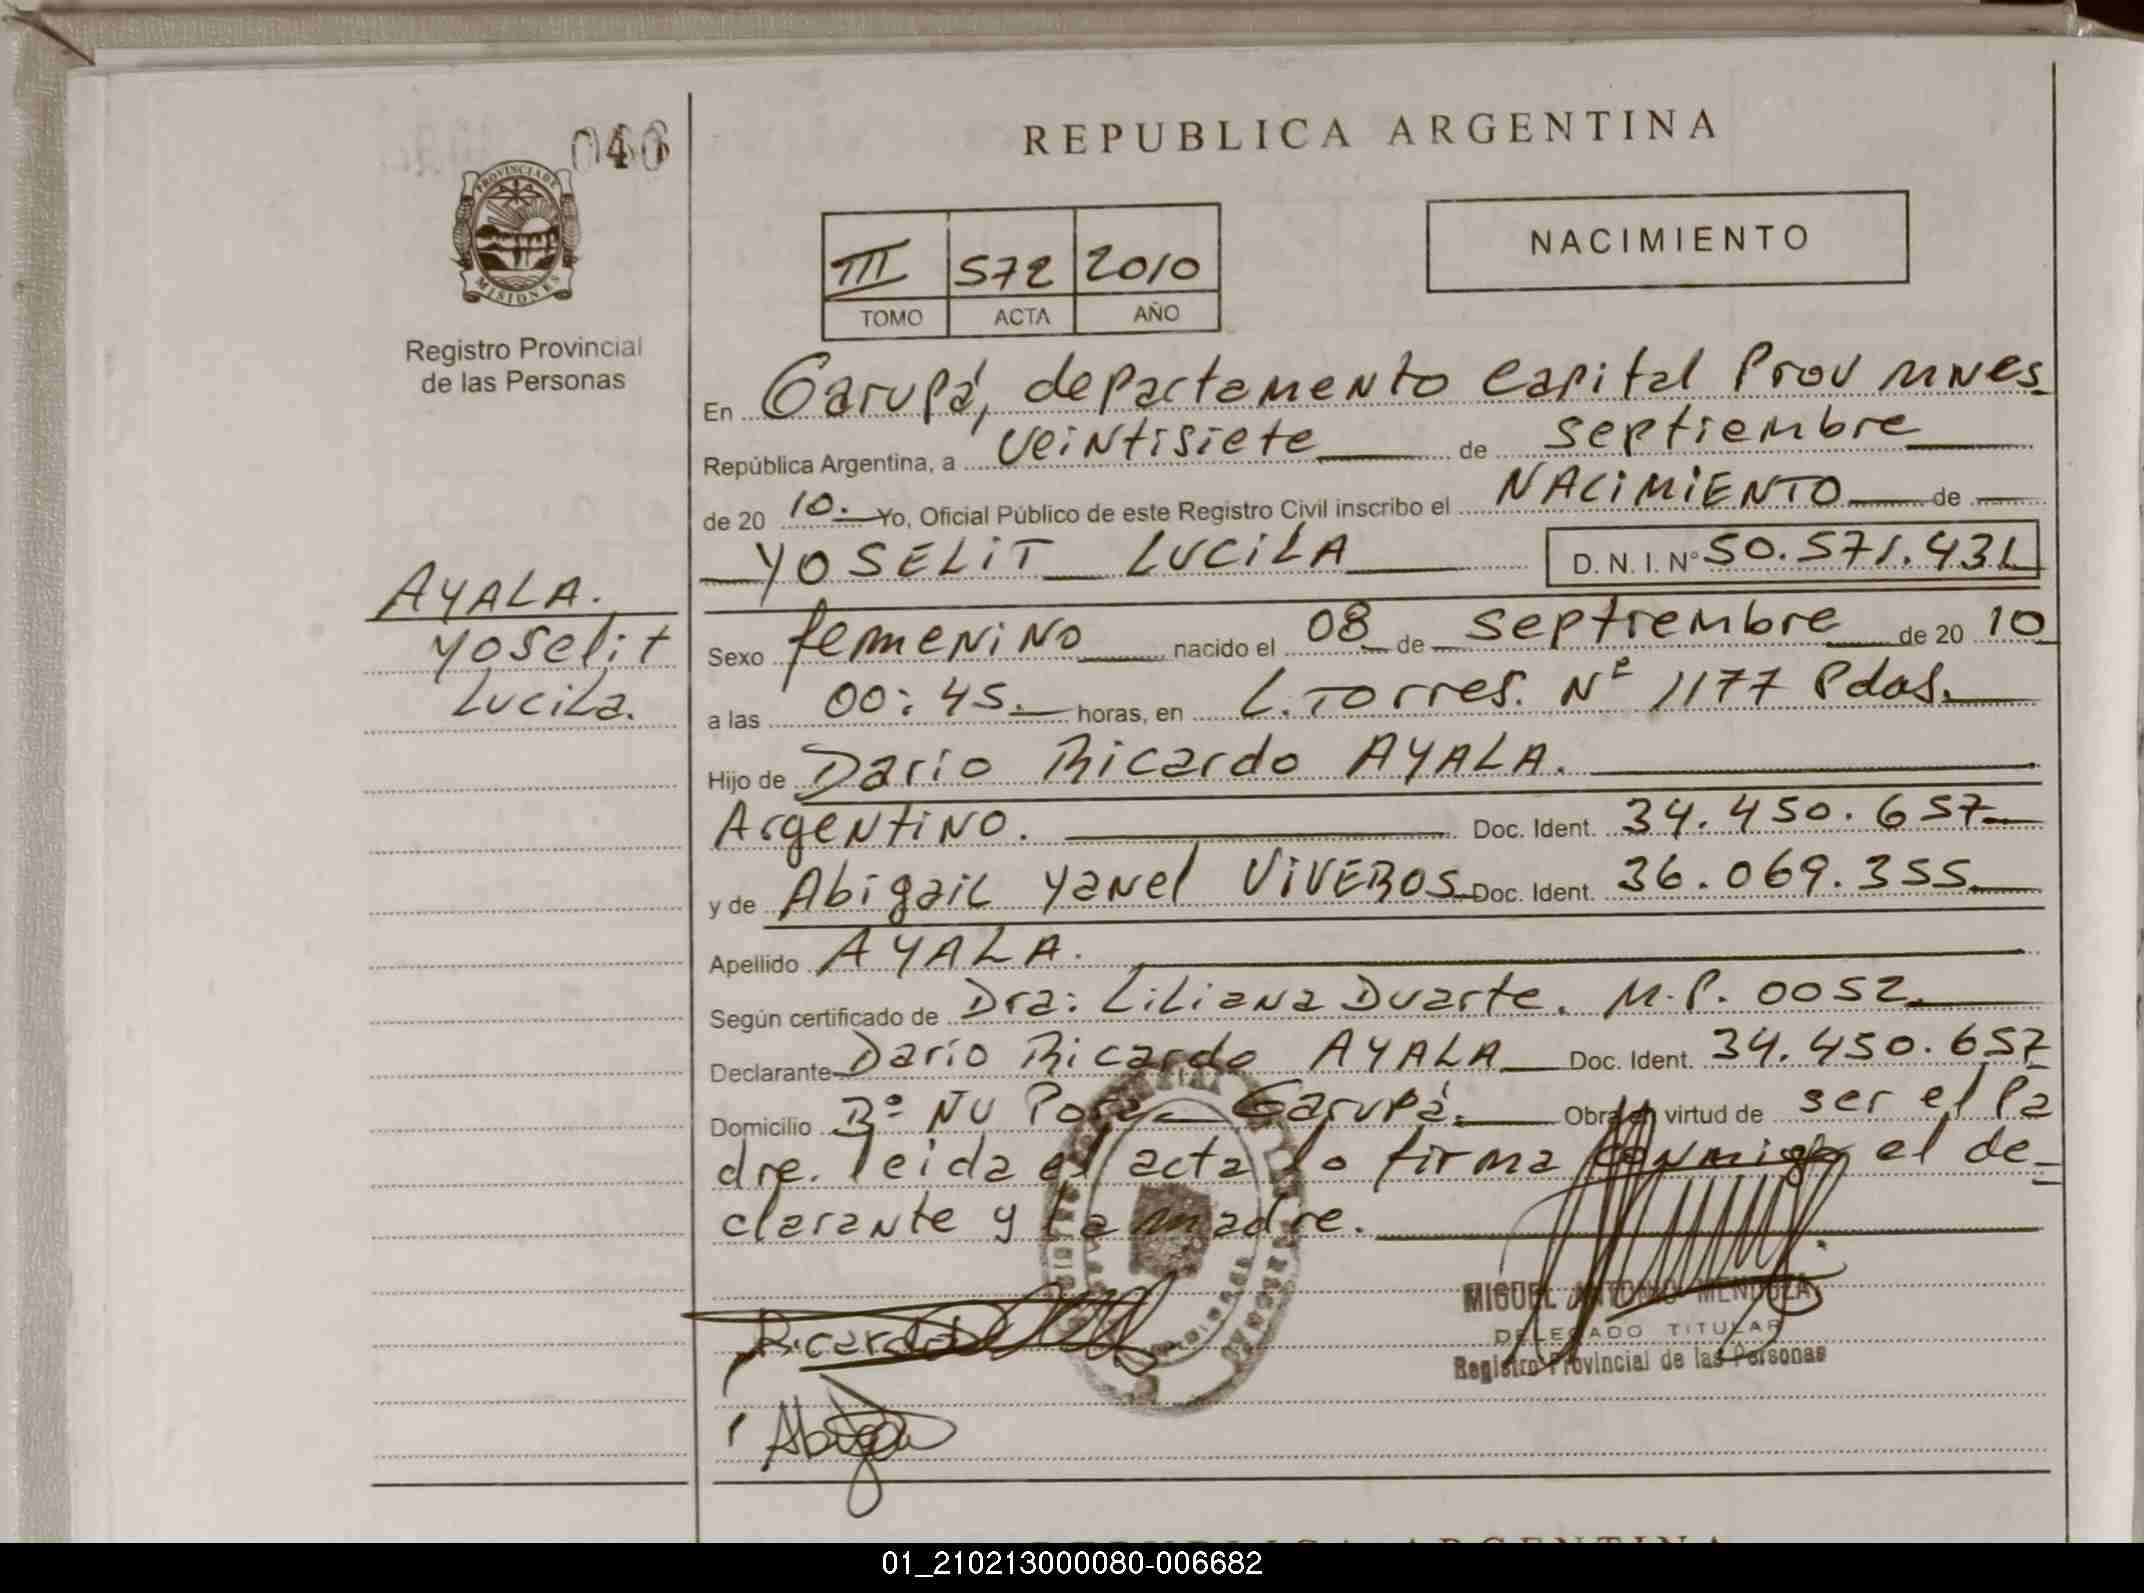 046
PROVINCIA DE
MISIONES
Registro Provincial
de las Personas
AYALA.
Yoselit
Lucila.
REPUBLICA ARGENTINA
NACIMIENTO
III 572 2010
TOMO ACTA AÑO
En Garupá, departamento Capital Prov Mnes
República Argentina, a veintisiete de septiembre
de 20 10. Yo, Oficial Público de este Registro Civil inscribo el NACIMIENTO de
YOSELIT LUCILA D. N. I. N° 50.571.431
Sexo femenino nacido el 08 de septiembre de 20 10
a las 00:45. horas, en L. Torres. Nº 1177 Pdas.
Hijo de Dario Ricardo AYALA.
Argentino. Doc. Ident. 34.450.657
y de Abigail Yanel VIVEROS Doc. Ident. 36.069.355
Apellido AYALA.
Según certificado de Dra: Liliana Duarte. M.P. 0052
Declarante Dario Ricardo AYALA Doc. Ident. 34.450.657
Domicilio Bº Ñu Pora - Garupá. Obra en virtud de ser el Pa
dre. leida el acta lo firma conmigo el de=
clarante y la madre.
Ricardo
MIGUEL ANTONIO MENDOZA
DELEGADO TITULAR
Registro Provincial de las Personas
REPUBLICA ARGENTINA
01_210213000080-006682